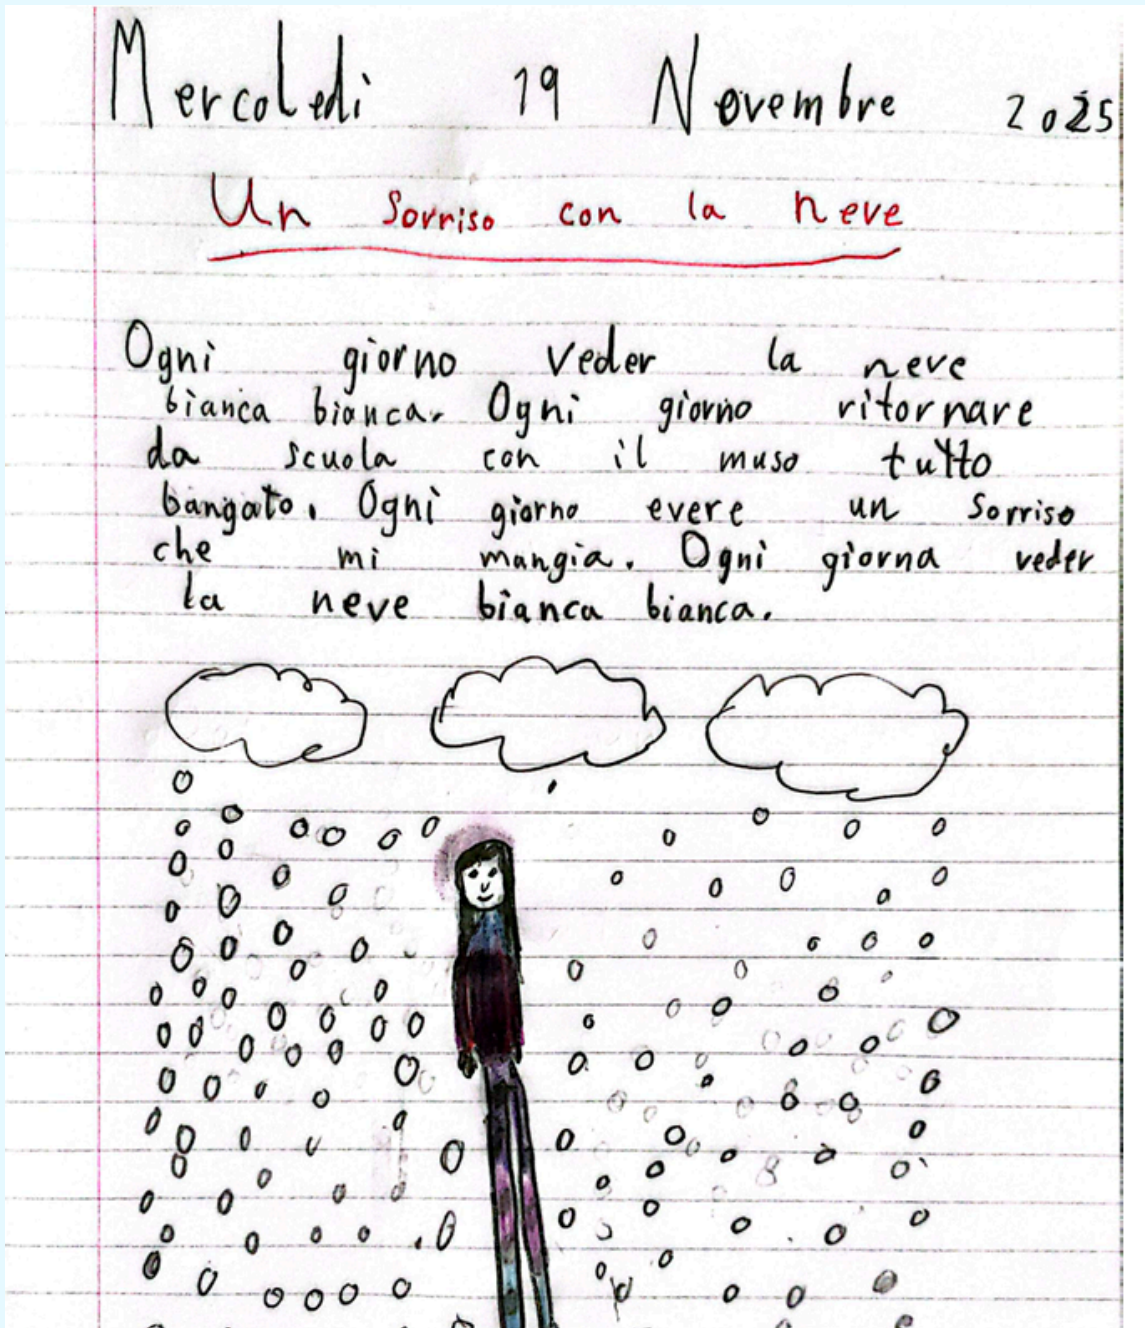 Mercoledì 19 Novembre 2025
Un sorriso con la neve
Ogni giorno veder la neve
bianca bianca. Ogni giorno ritornare
da scuola con il muso tutto
bangato. Ogni giorno evere un sorriso
che mi mangia. Ogni giorna veder
la neve bianca bianca.